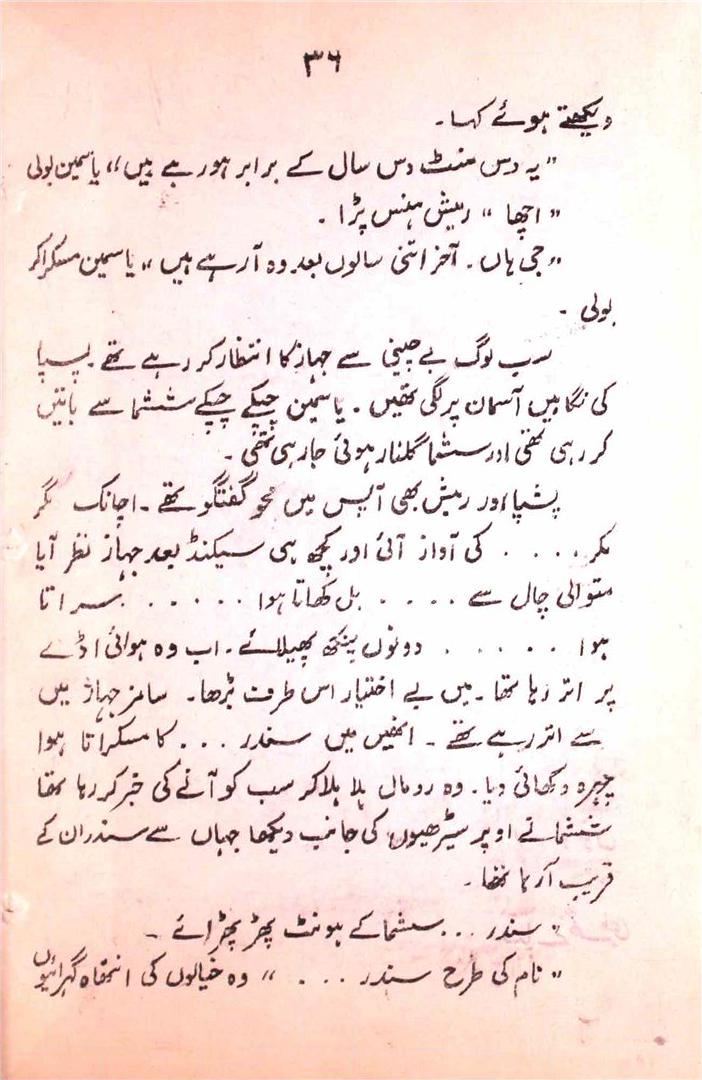 ۳۶
دیکھتے ہوئے کہا۔
"یہ دس منٹ دس سال کے برابر ہو رہے ہیں" یاسمین بولی
"اچھا" رمیش ہنس پڑا۔
"جی ہاں۔ آخر اتنی سالوں بعد وہ آرہے ہیں" یاسمین مسکرا کر
بولی۔
سب لوگ بے چینی سے جہاز کا انتظار کر رہے تھے۔ پسپا
کی نگاہیں آسمان پر لگی تھیں۔ یاسمین چپکے چپکے ششما سے باتیں
کر رہی تھی اور سشما گلنار ہوئی جا رہی تھی۔
پشپا اور رمیش بھی آپس میں محو گفتگو تھے۔ اچانک گر
گر.... کی آواز آئی اور کچھ ہی سیکنڈ بعد جہاز نظر آیا
متوالی چال سے .... بل کھاتا ہوا ...... سراتا
ہوا ...... دونوں پنکھ پھیلائے۔ اب وہ ہوائی اڈے
پر اتر رہا تھا۔ میں بے اختیار اس طرف بڑھا۔ جہاز میں
سے اتر رہے تھے۔ انھیں میں سندر ... کا مسکراتا ہوا
چہرہ دکھائی دیا۔ وہ رومال ہلا ہلا کر سب کو آنے کی خبر کر رہا تھا
ششما نے اوپر سیڑھیوں کی جانب دیکھا جہاں سے سندر ان کے
قریب آرہا تھا۔
"سندر... سشما کے ہونٹ پھڑ پھڑائے۔
"نام کی طرح سندر ...." وہ خیالوں کی اتھاہ گہرائیوں